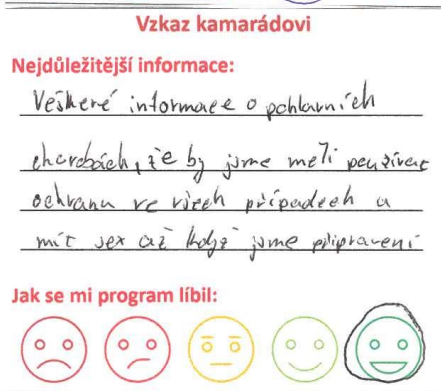 Vzkaz kamarádovi
Nejdůležitější informace:
Veškeré informace o pohlavních
chorobách, že by jsme meli používat
ochranu ve všech případech a
mít sex až když jsme připravení
Jak se mi program líbil: